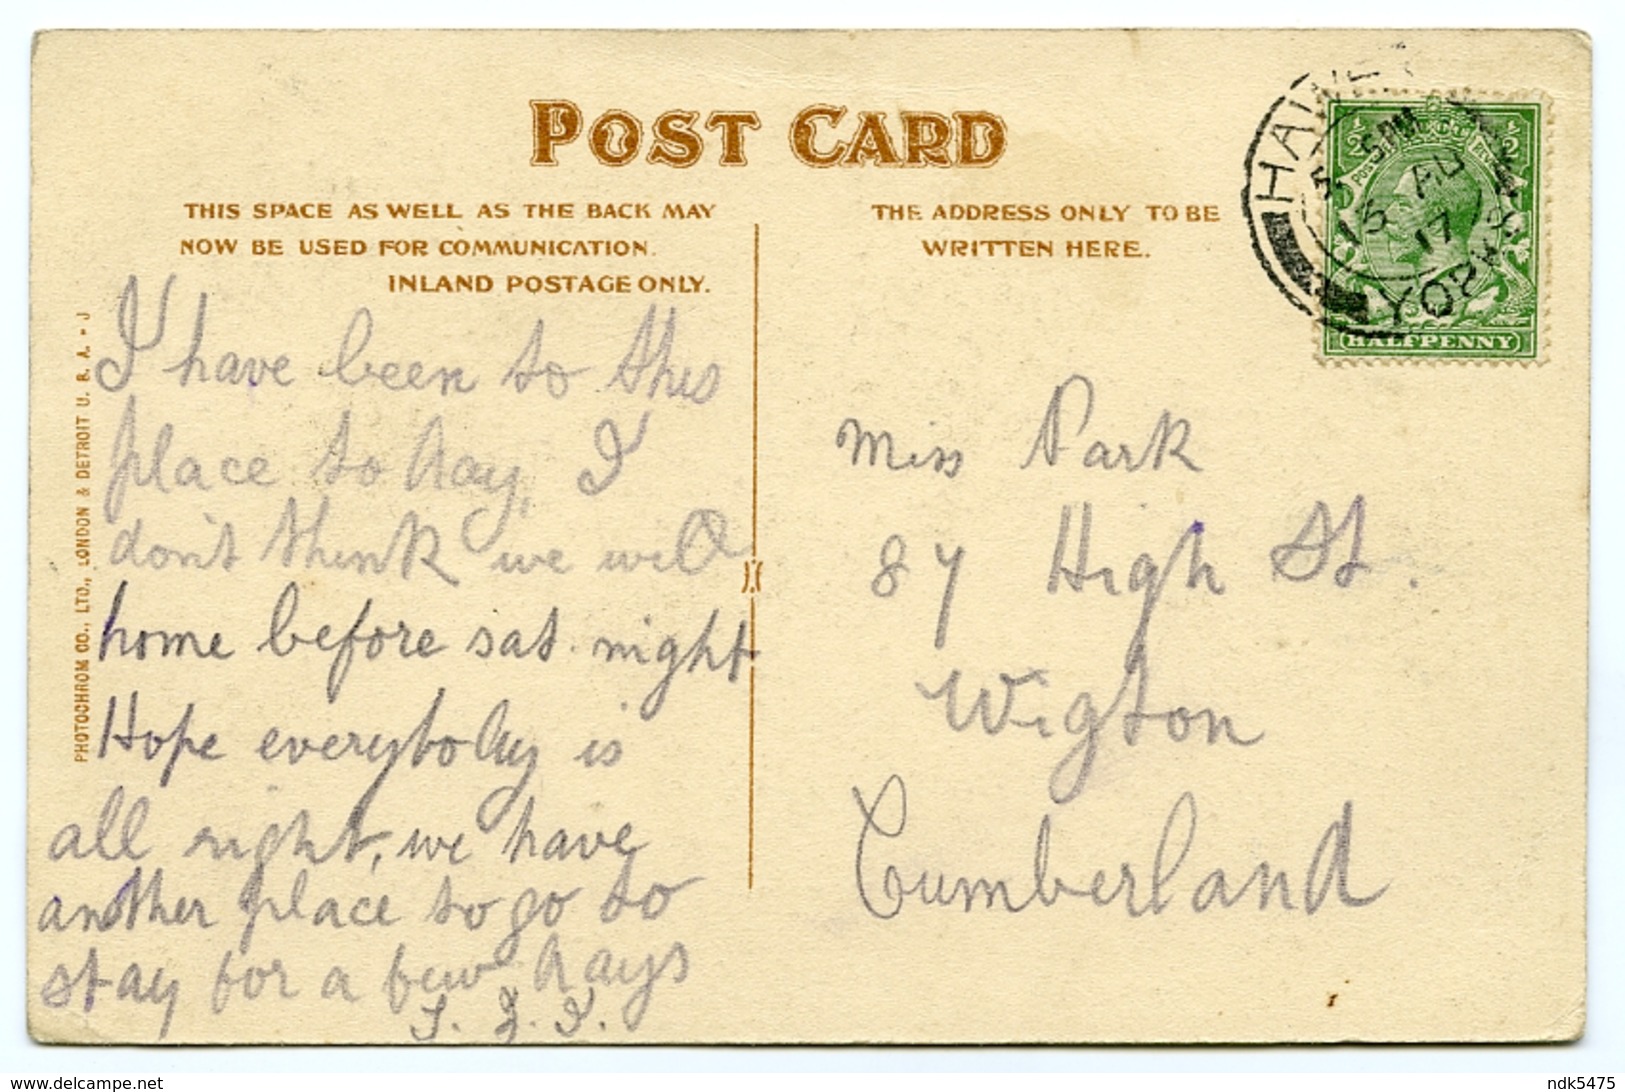 POST CARD
THIS SPACE AS WELL AS THE BACK MAY
NOW BE USED FOR COMMUNICATION.
INLAND POSTAGE ONLY.
THE ADDRESS ONLY TO BE
WRITTEN HERE.
HAWE
5 PM
15 AU
17
YORKS
HALFPENNY
PHOTOCHROM CO., LTD., LONDON & DETROIT U. B. A. - J
I have been to this
place to day, I
don't think we will
home before sat. night
Hope everybody is
all right, we have
another place to go to
stay for a few days
Miss Park
87 High St.
Wigton
Cumberland
delcampe.net
ndk5475